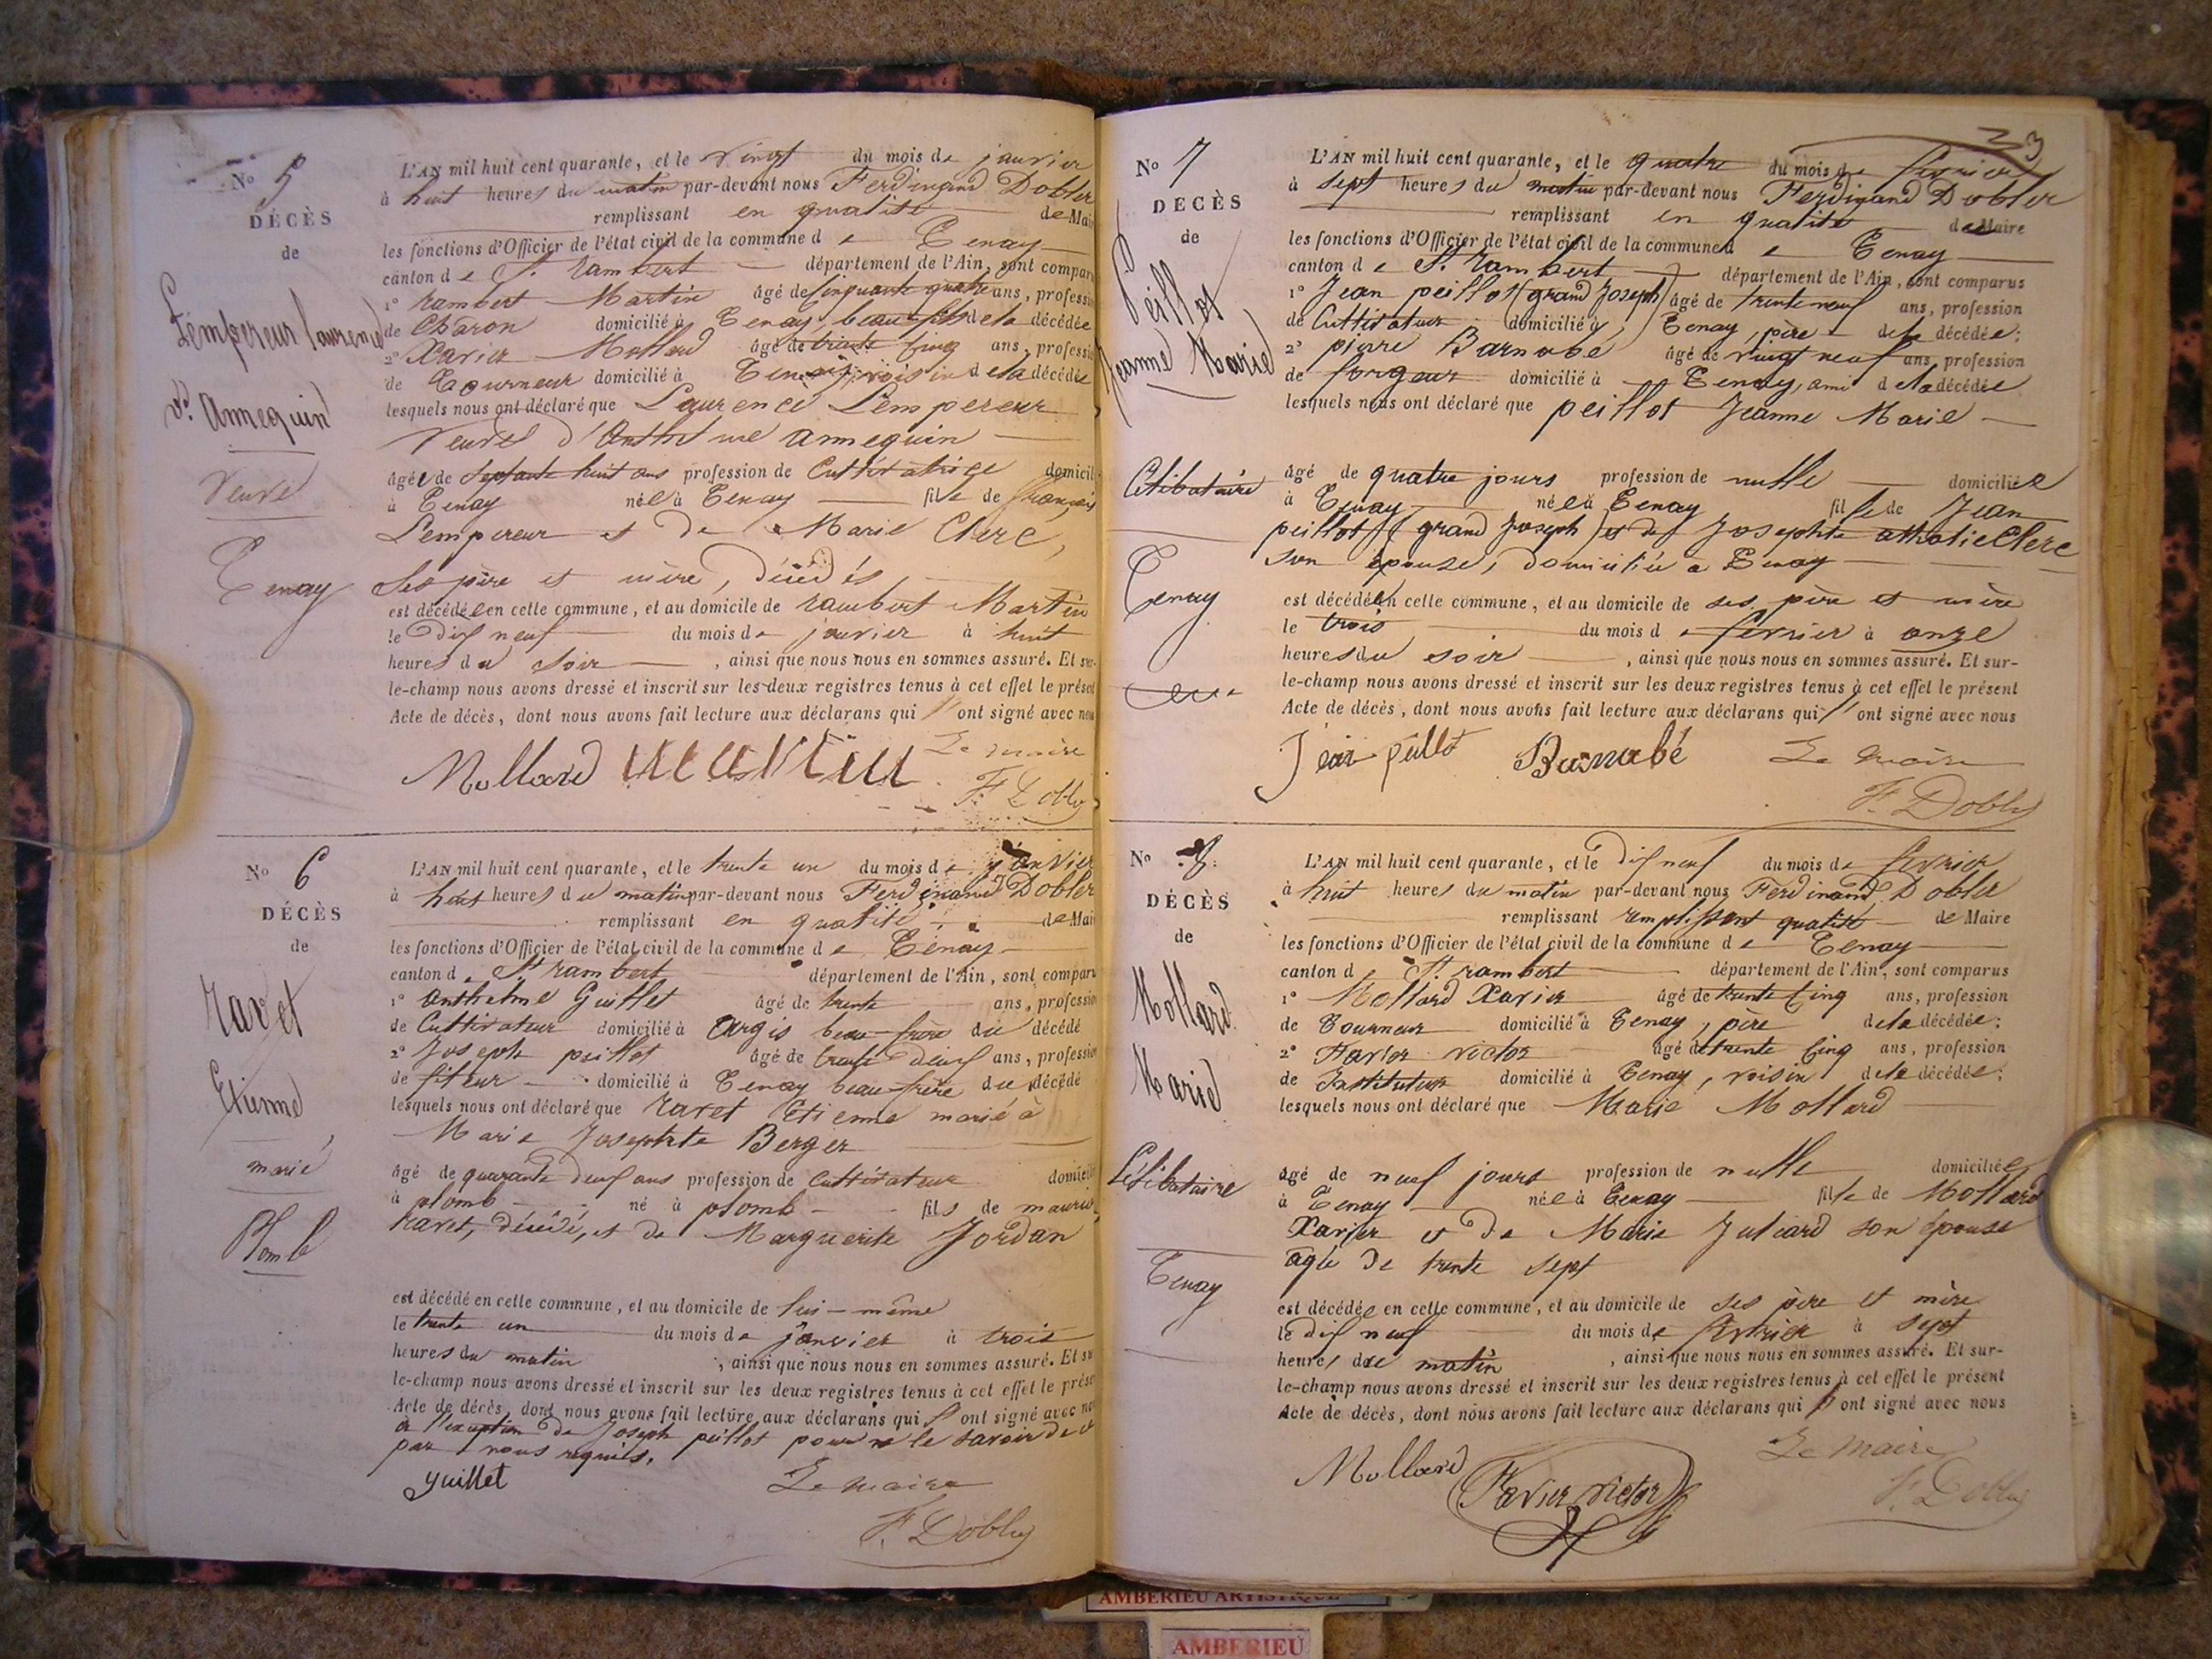 N° 5
DÉCÈS
de
Lempereur laurence
Ve. Annequin
Veuve
Tenay
L'AN mil huit cent quarante, et le vingt du mois de janvier
à huit heures du matin par-devant nous Ferdinand Dobler
remplissant en qualité de Mai
les fonctions d'Officier de l'état civil de la commune de Tenay
canton de St. rambert département de l'Ain, sont compar
1° rambert Martin âgé de Cinquante quatre ans, professi
de Charon domicilié à Tenay, beau-fils de la décédée
2° Xavier Mollard âgé de trente Cinq ans, professi
de Tourneur domicilié à Tenay, voisin de la décédée
lesquels nous ont déclaré que Laurence Lempereur
Veuve d'Anthelme annequin
âgée de Septante huit ans profession de Cultivatrice domicil
à Tenay née à Tenay fille de françois
Lempereur et de Marie Clerc,
Ses père et mère, décédés,
est décédée en cette commune, et au domicile de rambert Martin
le Dix neuf du mois de janvier à huit
heures du soir , ainsi que nous nous en sommes assuré. Et sur-
le-champ nous avons dressé et inscrit sur les deux registres tenus à cet effet le présent
Acte de décès, dont nous avons fait lecture aux déclarans qui l'ont signé avec nous
Mollard martin Le maire
F. Dobler
N° 6
DÉCÈS
de
ravet
Etienne
marié
Plomb
L'AN mil huit cent quarante, et le trente un du mois de janvier
à huit heures du matin par-devant nous Ferdinand Dobler
remplissant en qualité de Mai
les fonctions d'Officier de l'état civil de la commune de Tenay
canton de St. rambert département de l'Ain, sont compar
1° Anthelme Guillet âgé de trente ans, professio
de Cultivateur domicilié à Argis beau-frère du décédé
2° Joseph peillot âgé de trente deux ans, professio
de fileur domicilié à Tenay beau-frère du décédé
lesquels nous ont déclaré que ravet Etienne marié à
Marie Josephte Berger
âgé de quarante deux ans profession de Cultivateur domicil
à plomb né à plomb fils de maurice
ravet, décédé, et de Marguerite Jordan
est décédé en cette commune, et au domicile de lui-même
le trente un du mois de janvier à trois
heures du matin , ainsi que nous nous en sommes assuré. Et su
le-champ nous avons dressé et inscrit sur les deux registres tenus à cet effet le prése
Acte de décès, dont nous avons fait lecture aux déclarans qui l'ont signé avec no
à l'exception de Joseph peillot pour ne le savoir de ce
par nous requis.
guillet Le maire
F. Dobler
33
N° 7
DÉCÈS
de
Peillot
Jeanne Marie
Célibataire
Tenay
L'AN mil huit cent quarante, et le quatre du mois de février
à sept heures du matin par-devant nous Ferdinand Dobler
remplissant en qualité de Maire
les fonctions d'Officier de l'état civil de la commune de Tenay
canton de St. rambert département de l'Ain, sont comparus
1° Jean peillot (grand Joseph) âgé de trente neuf ans, profession
de Cultivateur domicilié à Tenay, père de la décédée;
2° pierre Barnabé âgé de vingt neuf ans, profession
de forgeur domicilié à Tenay, ami de la décédée
lesquels nous ont déclaré que peillot Jeanne Marie
âgé de quatre jours profession de nulle domiciliée
à Tenay née à Tenay fille de Jean
peillot (grand Joseph) et de Josephte athalie Clerc
son épouse, domiciliée à Tenay
est décédée en cette commune, et au domicile de ses père et mère
le trois du mois de février à onze
heures du soir , ainsi que nous nous en sommes assuré. Et sur-
le-champ nous avons dressé et inscrit sur les deux registres tenus à cet effet le présent
Acte de décès, dont nous avons fait lecture aux déclarans qui l'ont signé avec nous
Jean peillot Barnabé Le maire
F. Dobler
N° 8
DÉCÈS
de
Mollard
Marie
Célibataire
Tenay
L'AN mil huit cent quarante, et le dix neuf du mois de février
à huit heures du matin par-devant nous Ferdinand Dobler
remplissant remplissant qualité de Maire
les fonctions d'Officier de l'état civil de la commune de Tenay
canton de St. rambert département de l'Ain, sont comparus
1° Mollard Xavier âgé de trente Cinq ans, profession
de Tourneur domicilié à Tenay, père de la décédée;
2° Favier victor âgé de trente Cinq ans, profession
de Instituteur domicilié à Tenay, voisin de la décédée;
lesquels nous ont déclaré que Marie Mollard
âgé de neuf jours profession de nulle domiciliée
à Tenay née à Tenay fille de Mollard
Xavier et de Marie Juliard son épouse
agée de trente sept
est décédée en cette commune, et au domicile de ses père et mère
le dix neuf du mois de février à sept
heures du matin , ainsi que nous nous en sommes assuré. Et sur-
le-champ nous avons dressé et inscrit sur les deux registres tenus à cet effet le présent
Acte de décès, dont nous avons fait lecture aux déclarans qui l'ont signé avec nous
Mollard Favier victor Le maire
F. Dobler
AMBERIEU ARTISTIQUE
AMBERIEU